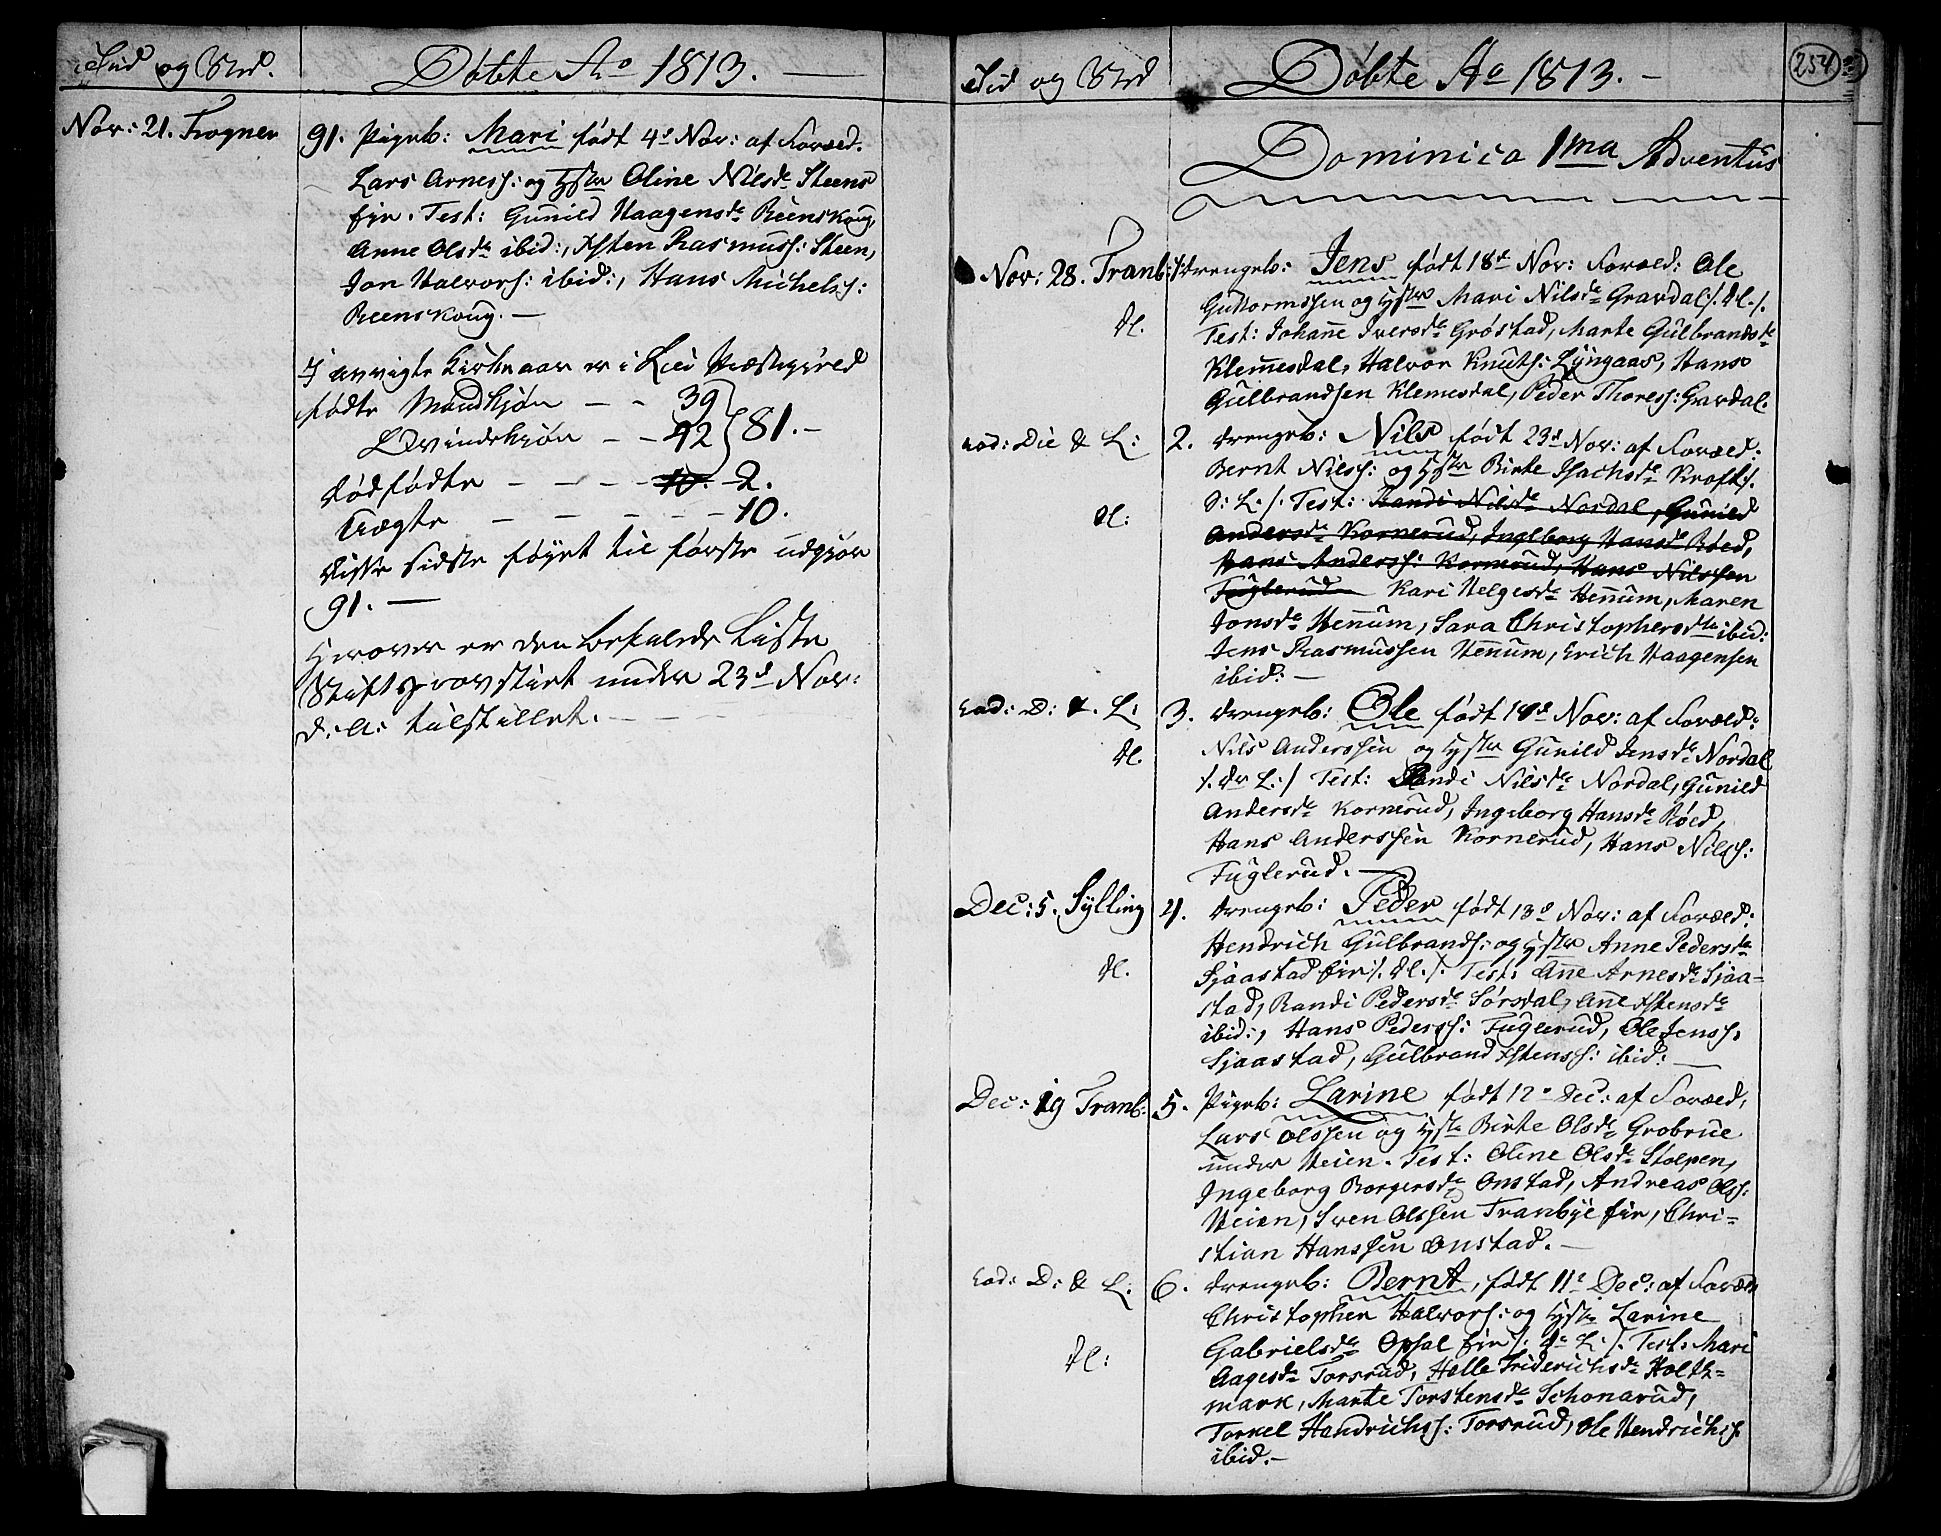 Tid og Sted.
Döbte Ao 1813.
Nov: 21. Frogner
91. Pigeb: Mari født 4de Nov: af Foræld.
Lars Arness: og Hstr Oline Nilsdr Steens
eje. Test: Gunild Haagensdr Reenskoug,
Anne Olsdr ibid:, Xsten Rasmuss: Steen,
Jon Halvors: ibid:, Hans Michels:
Reenskoug.
I avvigte Kirkeaar er i Lier Præstegield
fødte Mandkjøn - - 39
Qvindekjøn - - 42 } 81.
Dødfødte - - - - 10. 2.
Uægte - - - - - 10.
disse sidste føyet til første udgjør
91.
Herover er den befalede Liste
Stiftsprovstiet under 23d Nov:
d: a: tilstillet.
Tid og Sted
Döbte Ao 1813.
254
Dominica 1ma Adventus
Nov: 28. Tranb:
1. drengeb: Jens født 18de Nov: Foræld: Ole
Guttormssen og Hstr Mari Nilsdr Gravdal /: dl. /.
dl.
Test: Johanne Iversdr Gröstad, Marte Gulbrandsdr
Klemesdal, Halvor Knuts: Lyngaas, Hans
Gulbrandsen Klemesdal, Peder Thoress: Gravdal.
Eod: Die & L:
2. drengeb: Nils født 23d Nov: af Foræld:
Bernt Nilss: og Hstr Birte Isachsdr Kraft /.
D: L: /. Test: Randi Nilsdr Nordal, Gunild
dl:
Andersdr Kornerud, Ingeborg Hansdr Röed,
Hans Anderss: Kornerud, Hans Nilssen
Fuglerud Kari Helgesdr Hennum, Maren
Jonsdr Hennum, Sara Christophersdtr ibid:
Jens Rasmussen Hennum, Erich Haagensen
ibid:
Eod: D: & L:
3. drengeb: Ole født 14de Nov: af Foræld:
Nils Anderssen og Hstr Gunild Jensdr Nordal
dl.
/. dr L: / Test: Randi Nilsdr Nordal, Gunild
Andersdr Kornerud, Ingeborg Hansdr Röed,
Hans Anderssen Kornerud, Hans Nilss:
Fuglerud.
Dec: 5. Sylling
4. drengeb: Peder født 13de Nov: af Foræld:
Hendrich Gulbrands: og Hstr Anne Pedersdr
dl.
Sjaastad eje /. dl. /. Test: Anne Arnesdr Sjaa-
stad, Randi Pedersdr Sörsdal, Anne Xstensdr
ibid:, Hans Pederss: Fuglerud, Ole Jenss:
Sjaastad, Gulbrand Xstenss: ibid:
Dec: 19 Tranb:
5. Pigeb: Larine født 12te Dec: af Foræld,
Lars Olssen og Hstr Birte Olsdr Grobrue
under Heien. Test: Oline Olsdr Stolpen,
Ingeborg Borgersdr Onstad, Andreas Ols:
Heien, Sven Olssen Tranbye eje, Chri-
stian Hanssen Onstad.
Eod: D: & L:
6. drengeb: Bernt, født 11te Dec: af Foræld
Christopher Halvors: og Hstr Larine
dl:
Gabrielsdr Opsal eje /: dr L: /. Test: Mari
Aagesdr Torsrud, Helle Friderichsdr Holth-
mark, Marte Torstensdr Schonarud,
Torkel Hendrichss: Torsrud, Ole Hendrichss
ibid.